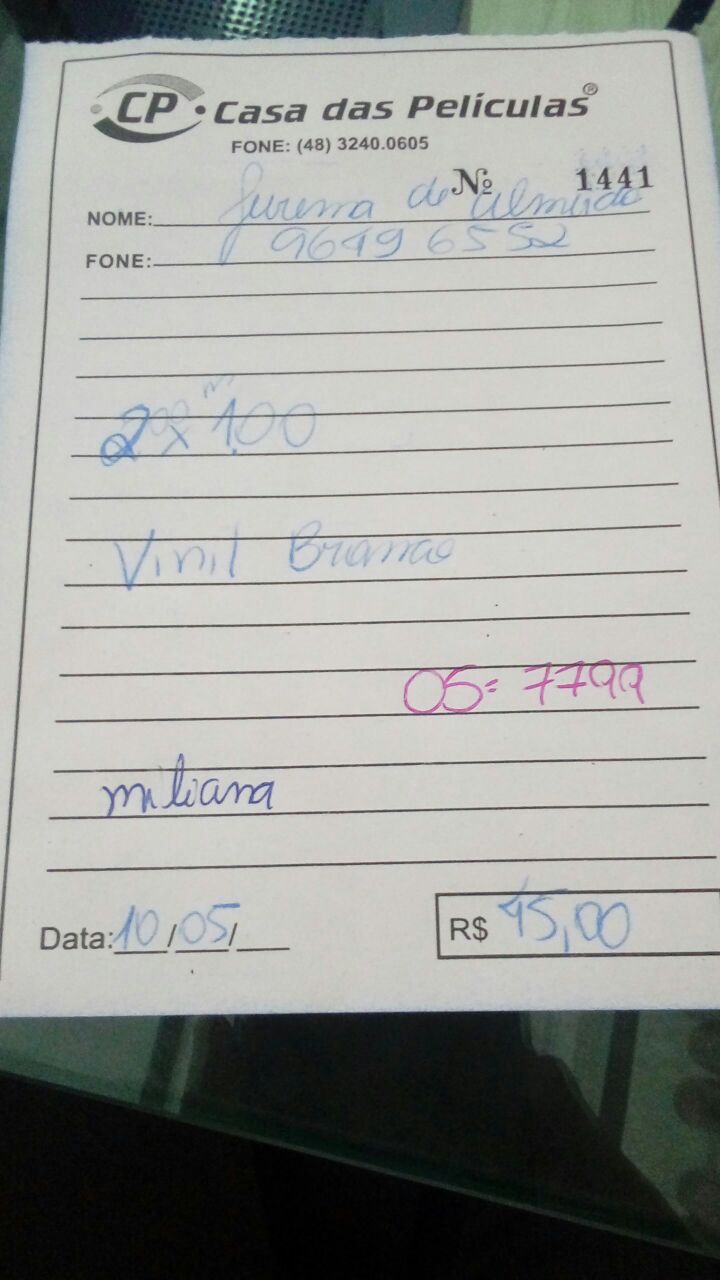 CP Casa das Películas®
FONE: (48) 3240.0605
Nº 1441
NOME: Jurema de Almeida
FONE: 9649 6552
2,00 x 1,00
Vinil Branco
OS: 7799
miliana
Data: 10/05/
R$ 45,00